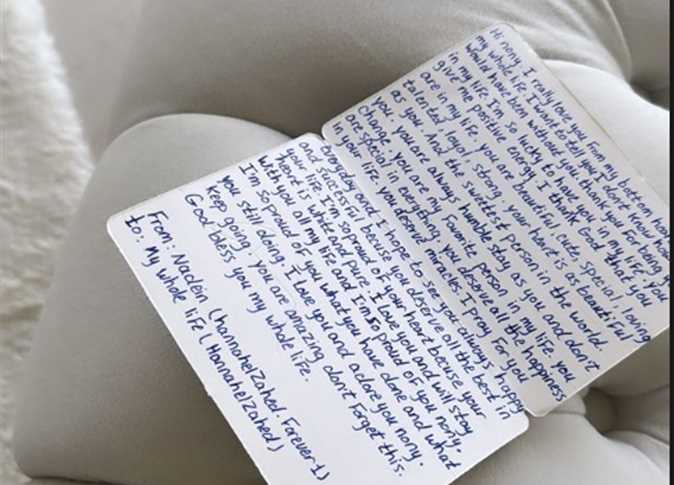 Hi nony. I really love you from my bottom heart
my whole life. I want to tell you I don't know how
would have been without you, thank you for being
in my life, I'm so lucky to have you in my life you
give me positive energy, I thank God that you
are in my life, you are beautiful, cute, special, loving
talented, loyal, strong. your heart is as beautiful
as you. And the sweetest person in the world.
you, you are always humble stay as you and dont
change. you are my favorite person in my life. you
are special in everything. you deserve all the happiness
in your life, you deserve miracles I pray For you
everyday and I hope to see you always happy
and successful becuse you deserve all the best in
your life. I'm so proud of your heart becuse your
heart is white and pure. I love you and will stay
with you all my life and I'm so proud of you nony.
I'm so proud of you what you have done and what
you still doing. I love you and adore you nony.
keep going, you are amazing dont forget this.
God bless you my whole life.
From: Nadein (HannahelZahed Forever 1)
to: My whole life (HannahelZahed)